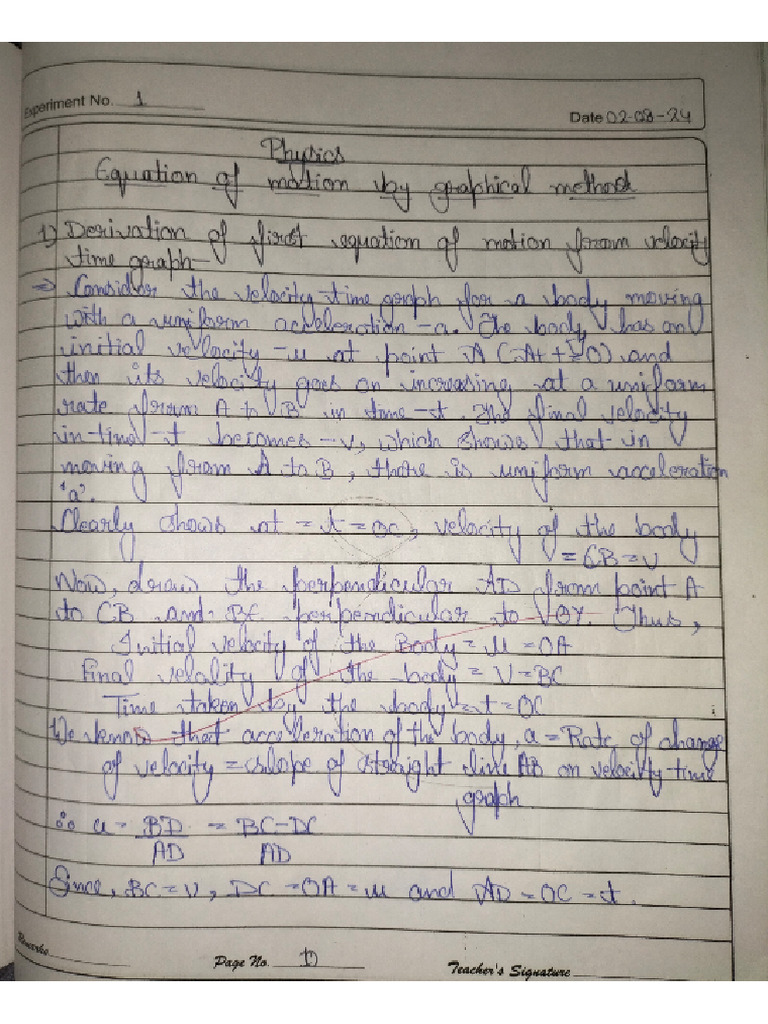 Experiment No. 1
Date 02-08-24
Physics
Equation of motion by graphical method
1) Derivation of first equation of motion from velocity
time graph-
⇒ Consider the velocity-time graph for a body moving
with a uniform acceleration -a. The body has an
initial velocity -u at point A (-At t=0) and
then its velocity goes on increasing at a uniform
rate from A to B in time -t. The final velocity
in-time-t becomes -v, which shows that in
moving from A to B, there is uniform acceleration
'a'.
Clearly shows at = t = OC, velocity of the body
= CB = V
Now, draw the perpendicular AD from point A
to CB and BE perpendicular to OY. Thus,
Initial velocity of the Body = u = OA
Final velality of the body = V = BC
Time taken by the body = t = OC
We know that acceleration of the body, a = Rate of change
of velocity = slope of straight line AB on velocity-time
graph.
∴ a = BD/AD = BC-DC/AD
Since, BC = V, DC = OA = u and AD = OC = t.
Remarks
Page No. 1)
Teacher's Signature